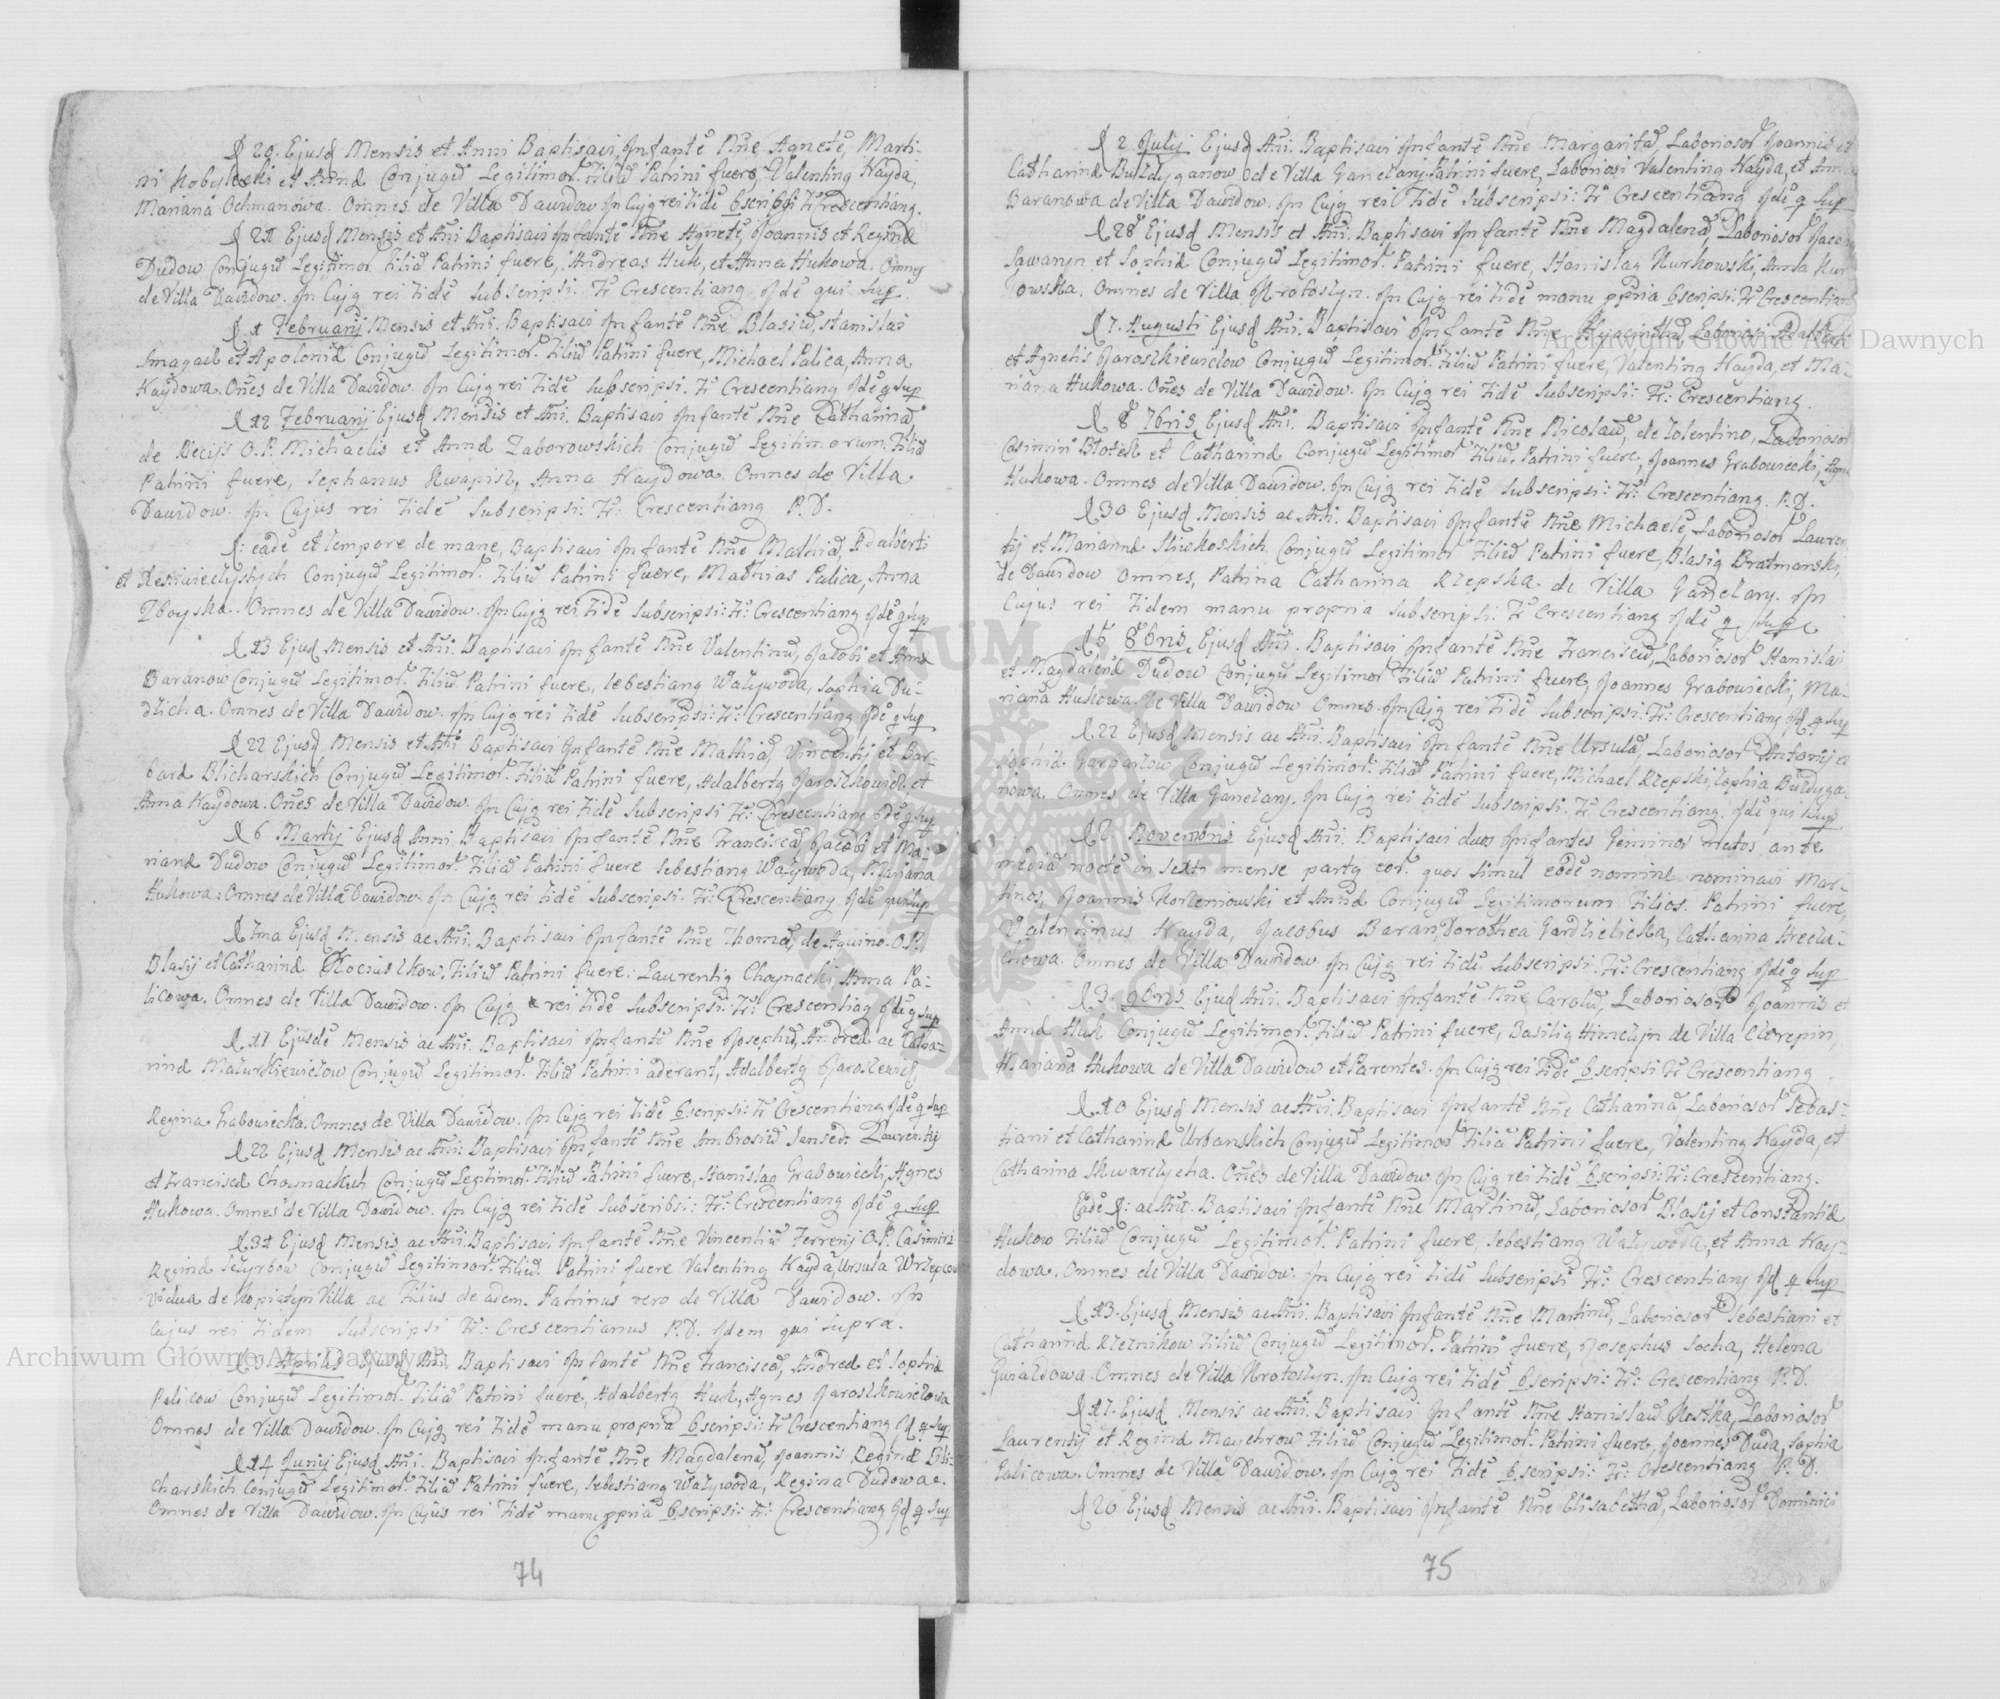 D 20. Ejusd Mensis et Anni Baptisavi Infantē Nñe Agnetē, Marti-
ni Kobyleski et Annæ Conjugū Legitimor. Filiā Patrini fuere, Valentinq Kayda,
Mariana Ochmanowa. Omnes de Villa Dawidow In Cujq rei fidē sscripsi Fr Crescentianq.
D 21 Ejusd Mensis et Añi Baptisavi Infantē Nñe Agnetē, Joannis et Reginæ
Dudow Conjugū Legitimor. Filiā Patrini fuere, Andreas Huk, et Anna Hukowa. Omnes
de Villa Dawidow. In Cujq rei fidē subscripsi. Fr Crescentianq Idē qui Sup.
D 1 Februarij Mensis et Añi. Baptisavi Infantē Nñe Blasiū, Stanislai
Smagacz et Apoloniæ Conjugū Legitimor. Filiū Patrini fuere, Michael Palica, Anna
Kaydowa. Oñes de Villa Dawidow. In Cujq rei fidē subscripsi. Fr Crescentianq Idē q Sup
D 12 Februarij Ejusd Mensis et Añi. Baptisavi Infantē Nñe Catharinā
de Riccijs O.P. Michaelis et Annæ Zaborowskich Conjugū Legitimorum Filiā
Patrini fuere, Sephanus Kwapisz, Anna Kaydowa. Omnes de Villa
Dawidow. In Cujus rei fidē subscripsi: Fr: Crescentianq P.D.
D: eadē et tempore de mane, Baptisavi Infantē Nñe Mathiā, Adalberti
et Conjugū Legitimor. Filiū Patrini fuere, Mathias Palica, Anna
Zboyska. Omnes de Villa Dawidow. In Cujq rei fidē subscripsi: Fr: Crescentianq Idē q Sup
D 13 Ejusd Mensis et Añi. Baptisavi Infantē Nñe Valentinū, Jacobi et Annæ
Baranow Conjugū Legitimor. Filiū Patrini fuere, Sebestianq Wazywoda, Sophia Du-
dzicha. Omnes de Villa Dawidow. In Cujq rei fidē subscripsi: Fr: Crescentianq Idē q Sup
D 22 Ejusd Mensis et Añi Baptisavi Infantē Nñe Mathiā, Vincentij et Bar-
baræ Blicharskich Conjugū Legitimor. Filiū Patrini fuere, Adalbertq Jaroszkowicz et
Anna Kaydowa. Oñes de Villa Dawidow. In Cujq rei fidē Subscripsi Fr: Crescentianq Idē q Sup
D 6 Martij Ejusd Anni Baptisavi Infantē Nñe Franciscā, Jacobi et Ma-
rianæ Dudow Conjugū Legitimor. Filiā Patrini fuere Sebestianq Wazywoda, Mariana
Hukowa: Omnes de Villa Dawidow. In Cujq rei fidē subscripsi. Fr: Crescentianq Idē qui Sup
D 7ma Ejusd Mensis ac Añi. Baptisavi Infantē Nñe Thomā, de Aquino. O.P.
Blasij et Catharinæ Kociuszkow, Filiū Patrini fuere: Laurentiq Choynacki, Anna Pa-
licowa. Omnes de Villa Dawidow. In Cujq rei fidē subscripsi: Fr: Crescentiaq Idē q Sup
D 17 Ejusdē Mensis ac Añi. Baptisavi Infantē Nñe Josephū, Andreæ ac Catha-
rinæ Mazurkiewiczow Conjugū Legitimor. Filiū Patrini aderant, Adalbertq
Regina Grabowiecka. Omnes de Villa Dawidow. In Cujq rei fidē sscripsi: Fr Crescentianq Idē q Sup
D 22 Ejusd Mensis ac Añi: Baptisavi Infantē Nñe Ambrosiū Laurentij
et Franciscæ Choynackich Conjugū Legitimor. Filiū Patrini fuere, Stanislaq Grabowiecki, Agnes
Hukowa. Omnes de Villa Dawidow. In Cujq rei fidē subscribsi: Fr: Crescentianq Idē q Sup
D 31 Ejusd Mensis ac Añi. Baptisavi Infantē Nñe Vincentiū Ferrerij O.P. Casimiri
Reginæ Conjugū Legitimor. Filiū. Patrini fuere Valentinq Kayda, Ursula
vidua de Kopiatyn Villa ac Filius de adem. Patrinus vero de Villa Dawidow. In
cujus rei fidem subscripsi Fr: Crescentianus P.D. Idem qui Supra.
D 3 Aprilis Ejusd Añi, Baptisavi Infantē Nñe Franciscā, Andreæ et Sophiæ
Palicow Conjugū Legitimor. Filiā Patrini fuere, Adalbertq Huk, Agnes Jaroszkowiczowa
Omnes de Villa Dawidow. In Cujq rei fidē manu propria sscripsi: Fr Crescentianq Id q Sup
D 14 Junij Ejusd Añi. Baptisavi Infantē Nñe Magdalenā, Joannis Reginæ Bli-
charskich Conjugū Legitimor. Filiā Patrini fuere, Sebestianq Wazywoda, Regina Dudowa.
Omnes de Villa Dawidow. In Cujus rei fidē manu ppria sscripsi: Fr: Crescentianq Id q Sup
74
D 2 Julij Ejusd Añi. Baptisavi Infantē Nñe Margaritā, Laboriosor Joannis et
Catharinæ Buzdyganow de Villa Ganczary. Patrini fuere, Laboriosi Valentinq Kayda, et Anna
Baranowa de Villa Dawidow. In Cujq rei fidē subscripsi: Fr Crescentianq Idē q Sup
D 28 Ejusd Mensis et Añi. Baptisavi Infantē Nñe Magdalenā, Laboriosor Jacobi
Sawaryn et Sophiæ Conjugū Legitimor. Patrini fuere, Stanislaq Kurkowski, Anna Kur-
kowska. Omnes de Villa Krotoszyn. In Cujq rei fidē manu ppria sscripsi: Fr Crescentian
D 7. Augusti Ejusd Añi. Baptisavi Infantē Nñe Hyacinthū Laboriosi Adalberti
et Agnetis Jaroszkiewiczow Conjugū Legitimor. Filiū Patrini fuere, Valentinq Kayda, et Ma-
riana Hukowa. Oñes de Villa Dawidow. In Cujq rei fidē subscripsi: Fr: Crescentianq.
D 8 7bris Ejusd Añi. Baptisavi Infantē Nñe Nicolaū, de Tolentino, Laboriosor
Casimiri et Catharinæ Conjugū Legitimor Filiū. Patrini fuere, Joannes Grabowiecki, Agnes
Hukowa. Omnes de Villa Dawidow. In Cujq rei fidē subscripsi: Fr: Crescentianq. P.D.
D 30 Ejusd Mensis ac Añi. Baptisavi Infantē Nñe Michaelē, Laboriosor Lauren-
tij et Mariannæ Conjugū Legitimor Filiū Patrini fuere, Blasiq Bratmanski,
de Dawidow Omnes, Patrina Catharina Rzepska de Villa Ganczary. In
Cujus rei fidem manu propria subscripsi: Fr Crescentianq Idē q Sup
D 5 8bris, Ejusd Añi. Baptisavi Infantē Nñe Franciscū, Laboriosor Stanislai
et Magdalenæ Dudow Conjugū Legitimor Filiū Patrini fuere, Joannes Grabowiecki, Ma-
riana Hukowa. De Villa Dawidow Omnes. In Cujq rei fidē subscripsi: Fr: Crescentianq Id q Sup
D 22 Ejusd Mensis ac Añi. Baptisavi Infantē Nñe Ursulā, Laboriosor Antonij et
Sophiæ Conjugū Legitimor. Filiā Patrini fuere, Michael Rzepski, Sophia Buzdyga-
nowa. Omnes de Villa Ganczary. In Cujq rei fidē subscripsi. Fr Crescentianq Idē, qui Sup
D 2 Novembris Ejusd Añi. Baptisavi duos Infantes Geminos natos ante
mediā noctē in sexti mense partq eor. quos simul eodē nomine nominavi Mar-
tinos, Joannis Korzeniowski et Annæ Conjugū Legitimorum Filios. Patrini fuere,
Valentinus Kayda, Jacobus Baran, Dorothea Gardzielicka, Catharina
Omnes de Villa Dawidow. In Cujq rei fidē subscripsi Fr: Crescentianq Idē q Sup
D 3. 9bris Ejusd Añi. Baptisavi Infantē Nñe Carolū, Laboriosor Joannis et
Annæ Huk Conjugū Legitimor. Filiū Patrini fuere, Basiliq de Villa Czerepin,
Mariana Hukowa de Villa Dawidow et Parentes. In Cujq rei fidē sscripsi Fr Crescentianq
D 10 Ejusd Mensis ac Añi. Baptisavi Infantē Nñe Catharinā Laboriosor Sebas-
tiani et Catharinæ Urbanskich Conjugū Legitimor Filiā Patrini fuere, Valentinq Kayda, et
Catharina Skwarczycha. Oñes de Villa Dawidow. In Cujq rei fidē sscripsi: Fr: Crescentianq.
Eadē D: ac Añi. Baptisavi Infantē Nñe Martinū, Laboriosor Blasij et Constantiæ
Hukow Filiū Conjugū Legitimor. Patrini fuere, Sebestianq Wazywoda, et Anna Kay-
dowa. Omnes de Villa Dawidow. In Cujq rei fidē subscripsi Fr: Crescentianq Id q Sup
D 13. Ejusd Mensis ac Añi. Baptisavi Infantē Nñe Martinū, Laboriosor Sebestiani et
Catharinæ Rzeznikow Filiū Conjugū Legitimor. Patrini fuere, Josephus Socha, Helena
Gwiazdowa. Omnes de Villa Krotoszyn. In Cujq rei fidē sscripsi: Fr: Crescentianq P.D.
D 17. Ejusd Mensis ac Añi. Baptisavi Infantē Nñe Stanislaū Kostka, Laboriosor
Laurentij et Reginæ Maychrow Filiū Conjugū Legitimor. Patrini fuere, Joannes Duda, Sophia
Palicowa. Omnes de Villa Dawidow. In Cujq rei fidē sscripsi: Fr: Crescentianq P.D.
D 20 Ejusd Mensis ac Añi. Baptisavi Infantē Nñe Elisabethā, Laboriosor Dominici
75
Archiwum Główne Akt Dawnych
Archiwum Główne Akt Dawnych